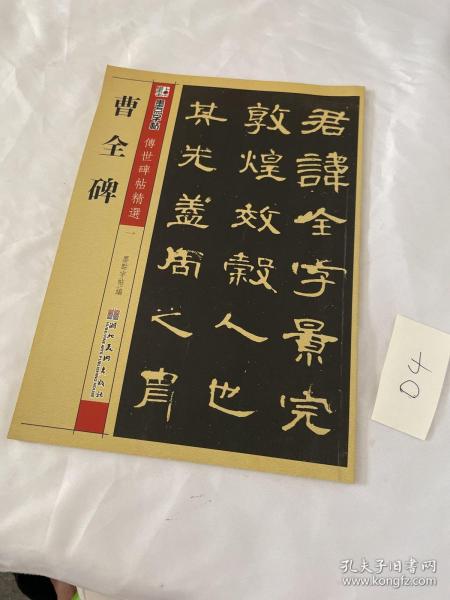 曹全碑
墨点字帖
傳世碑帖精選
一
墨點字帖 編
湖北美術出版社
君諱全字景完
敦煌效穀人也
其先蓋周之胄
04
孔夫子旧书网
www.kongfz.com